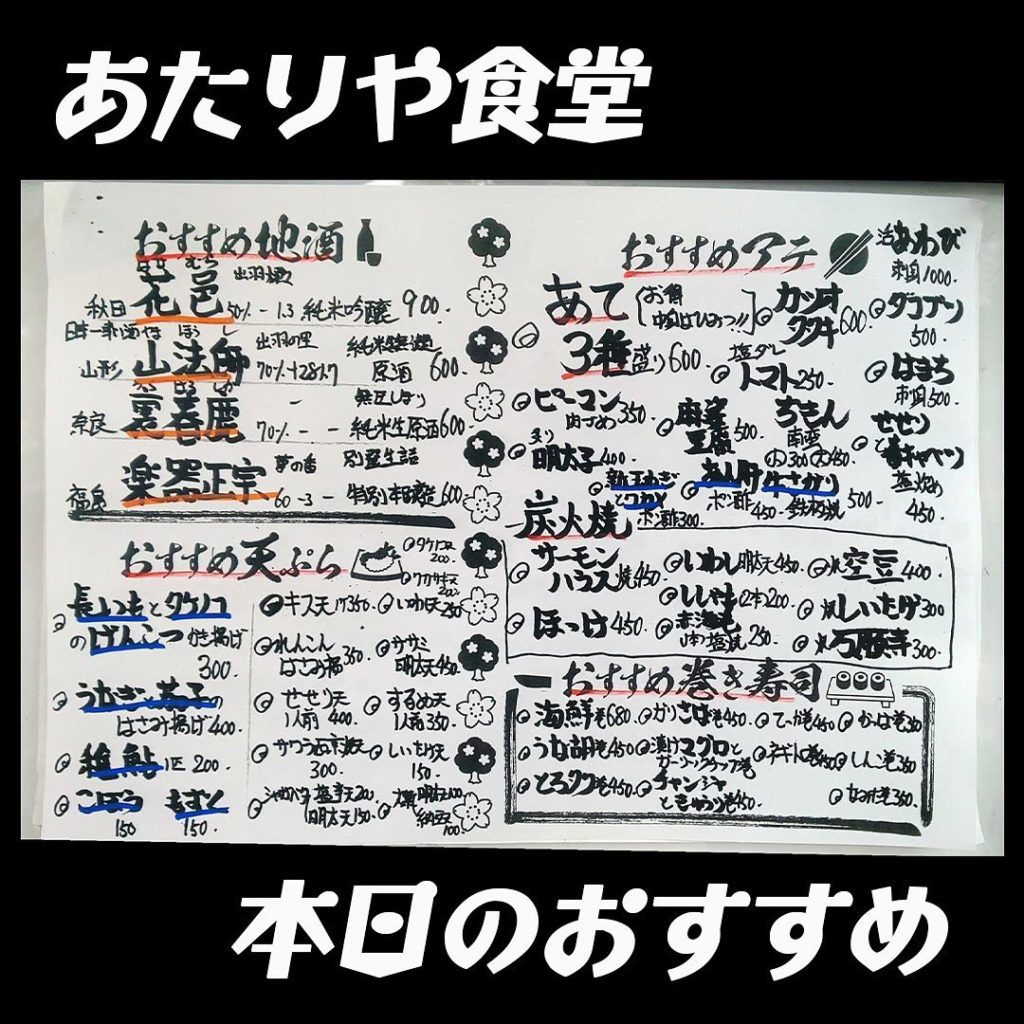 あたりや食堂
おすすめ地酒
はな むら
秋田 花邑 50% -1.3 純米吟醸 900.
日本一辛い酒 やま ほう し
山形 山法師 出羽の里 70% +28 原酒 600.
奈良 裏春鹿 70% - - 純米生原酒 600.
福島 楽器正宗 夢の香 別誂生詰
60 -3- 特別本醸造 600.
おすすめ天ぷら
タケノコ 200.
ワカサギ 200.
長いもとタケノコ
のげんこつかき揚げ
300.
はさみ揚げ 400.
稚鮎 1匹 200.
ごぼう 150
もずく 150.
キス天 350.
いわし天 250
れんこん
はさみ揚 350.
ササミ
明太天 450.
せせり天
1人前 400.
するめ天
1人前 350.
300.
しいたけ天
150.
明太天 150.
納豆 100.
おすすめアテ
あて
3種盛り 600
お得
中身はひみつ!!
カツオ
タタキ 600.
活あわび
刺身 1000.
タコブツ
500.
ピーマン
肉づめ 350
塩ダレ
トマト 250.
はまち
刺身 500.
炙り
明太子 400
麻婆
豆腐 500.
ちきん
南蛮
小 300 大 450
せせり
と春キャベツ
塩炒め
450.
新玉ねぎ
とワカメ
ポン酢 300.
あん肝
ポン酢 450.
牛さがり
鉄板焼 500.
炭火焼
サーモン
ハラス焼 450
いわし明太 450.
焼空豆 400.
ししゃも(2本) 200.
ほっけ 450.
赤海老
塩焼 250.
焼しいたけ 300
300.
おすすめ巻き寿司
海鮮巻 680.
ガリさば巻 450.
てっか巻 450
かっぱ巻
うな胡巻 450
漬けマグロと
ガーリックチップ巻
ネギトロ巻 450
しんこ巻 350
とろタク巻 450.
チャンジャ
ときゅうり巻 450.
なみだ巻 350.
本日のおすすめ